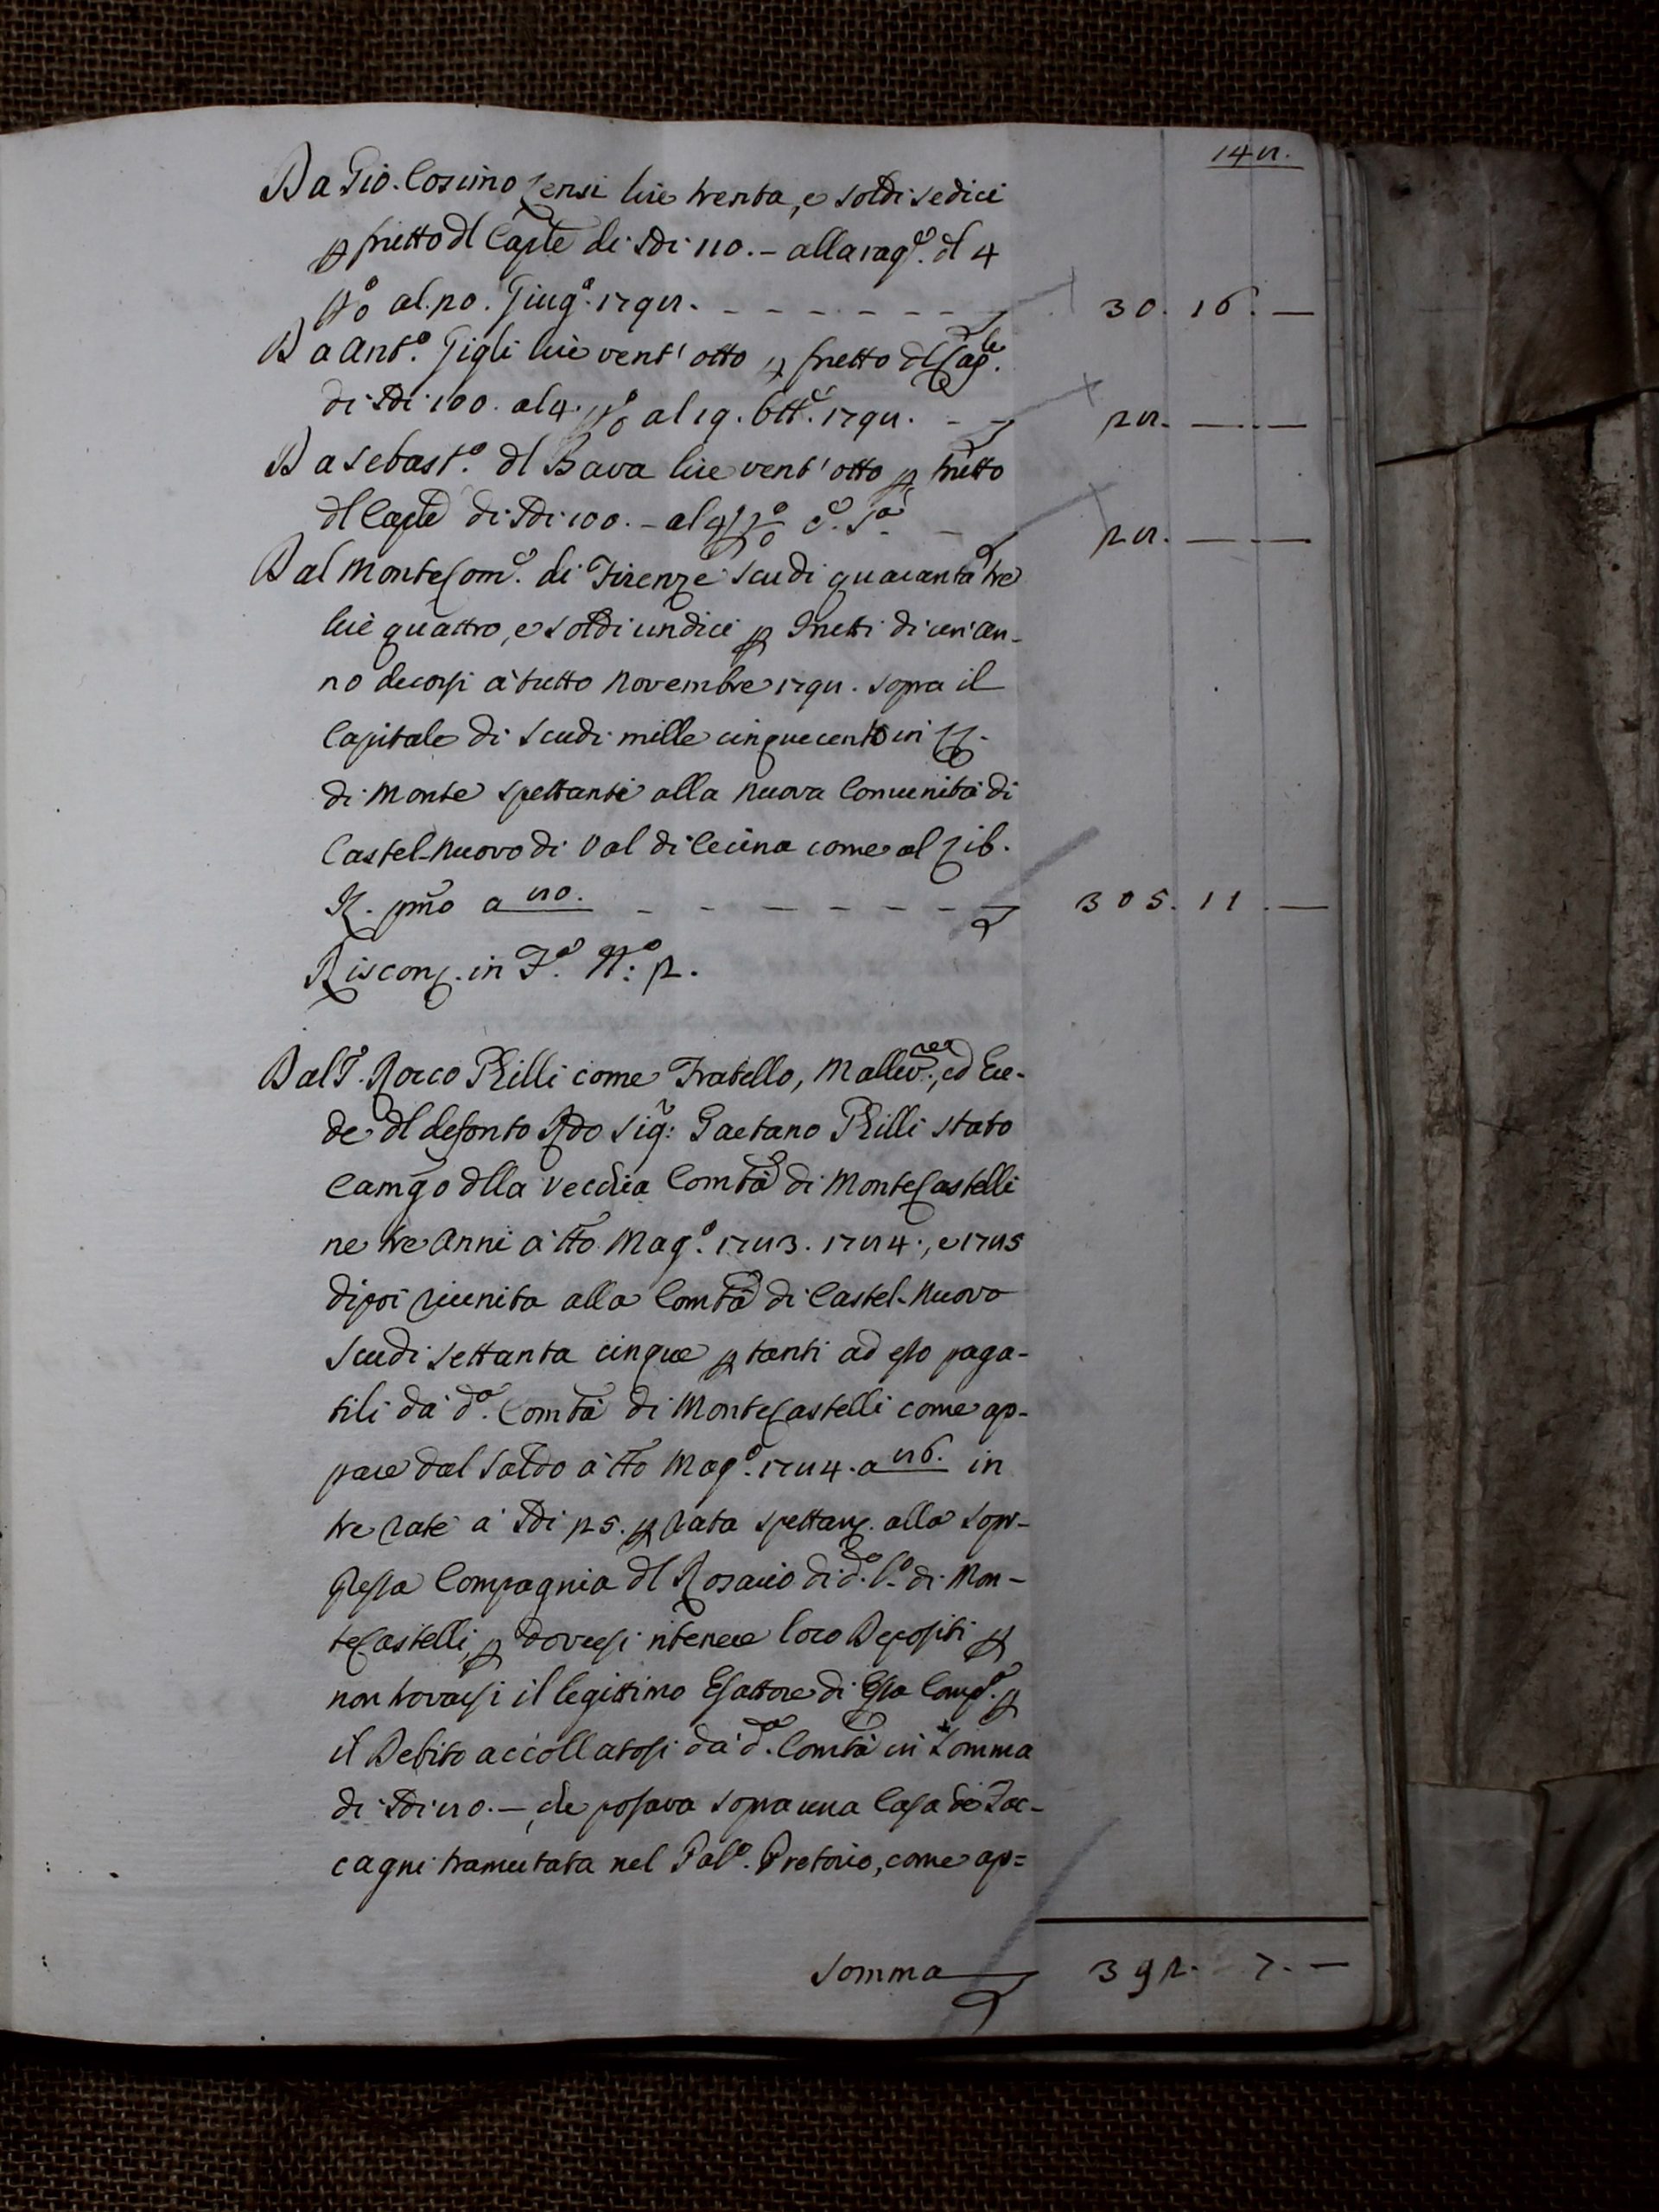 148.
Da Gio. Cosimo Censi lire trenta, e soldi sedici
p frutto dl Caple di Sdi 110. – alla ragᵉ. dl 4
p% al 20. Giugº. 1798. – – – – – – – 30. 16. —
Da Antº. Gigli lire vent' otto p frutto dl Capˡᵉ.
di Sdi 100. al 4. p% al 19. Ottᵉ. 1798. – – 28. — . —
Da Sebastº. dl Bava lire vent' otto p frutto
dl Caple di Sdi 100. – al 4 p% c.ᵉ S.ᵃ – 28. — . —
Dal Monte Comᵉ. di Firenze Scudi quaranta tre
lire quattro, e soldi undici p frutti di un' an-
no decorsi a' tutto Novembre 1798. sopra il
Capitale di Scudi mille cinquecento in
di Monte spettanti alla nuova Comunità di
Castel-nuovo di Val di Cecina come al Lib.
R. pmo a 80. – – – – – – – 305. 11. —
Riscon. in Fª. Nº: 2.
Dal S. Rocco Rilli come Fratello, Mallevʳᵉ., ed Ere-
de dl defonto Sig: Gaetano Rilli stato
Camgo dlla vecchia Comtà di Monte Castelli
ne tre Anni à tto Magº. 1783. 1784., e 1785
dipoi riunita alla Comtà di Castel-nuovo
Scudi settanta cinque p tanti ad esso paga-
tili da dª. Comtà di Monte Castelli come ap-
pare dal Saldo a' tto Magº. 1784. a 86. in
tre rate a' Sdi 25. p rata spettan. alla sop-
pressa Compagnia dl Rosario di dº. Cº. di Mon-
teCastelli, p doversi ritenere loco Depositi p
non trovarsi il legittimo Esattore di Essa Compª. p
il Debito accollatosi da dª. Comtà in somma
di Sdi 80. –, che posava sopra una Casa de Zac-
cagni tramutata nel Palº. Pretorio, come ap=
Somma 392. 7. —